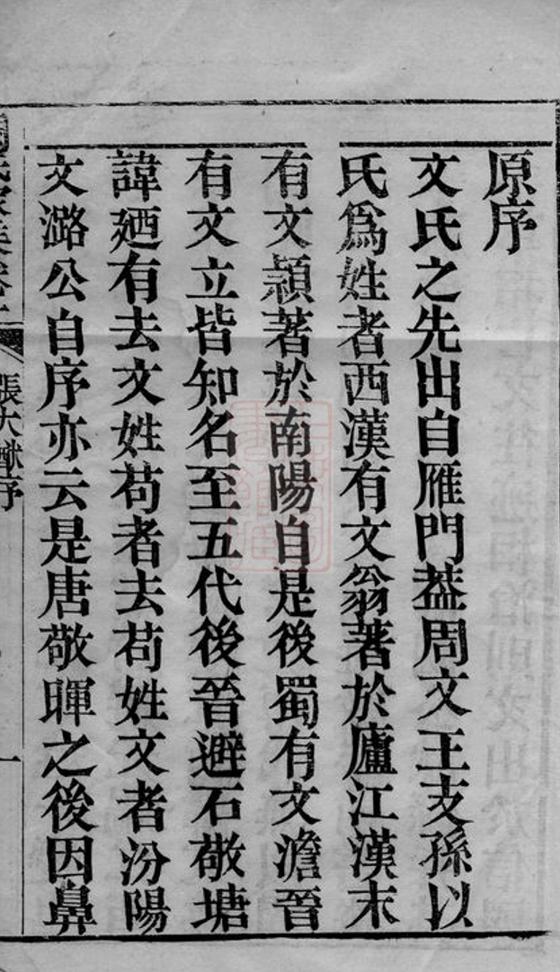 原序
文氏之先出自雁門葢周文王支孫以
氏爲姓者西漢有文翁著於廬江漢末
有文頴著於南陽自是後蜀有文澹晉
有文立皆知名至五代後晉避石敬塘
諱廼有去文姓苟者去苟姓文者汾陽
文潞公自序亦云是唐敬暉之後因鼻
張大猷序
一